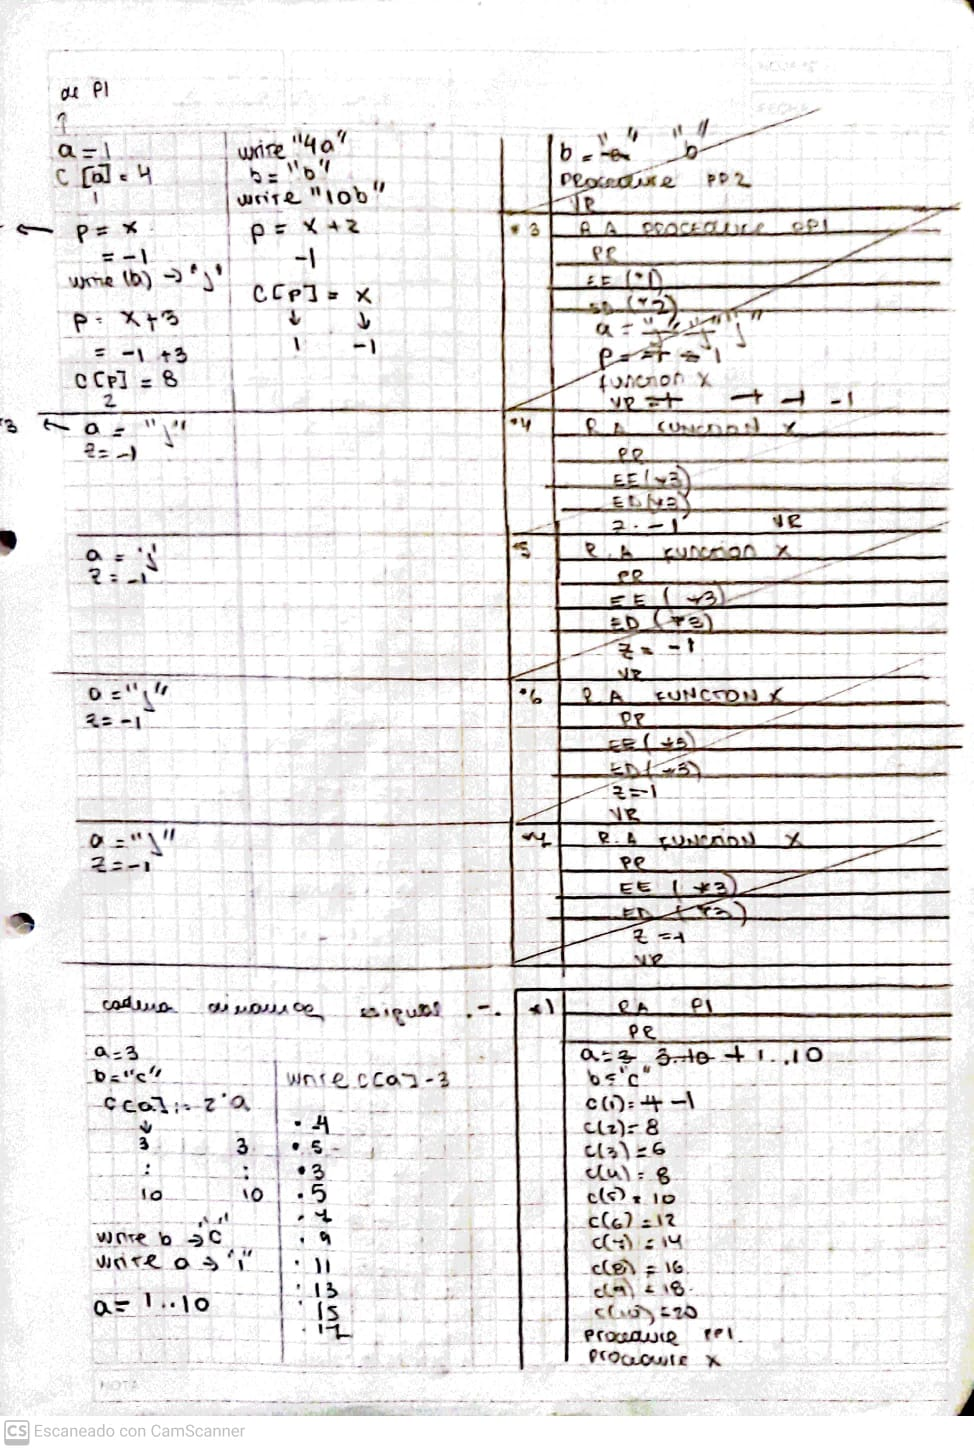 de P1
a = 1
C [a] = 4
1
P = x
= -1
write (a) → "j"
P = x + 3
= -1 + 3
C[P] = 8
2
write "4a"
b = "b"
write "10b"
P = x + 2
-1
C[P] = x
1 -1
b = "a" "b"
Procedure PP2
VR
*3 R A PROCEDURE PP1
PR
EE (*1)
ED (*2)
a = "j" "j" "j"
P = 1
function x
VR = -1
*3 a = "j"
z = -1
*4 R A FUNCTION X
PR
EE (*3)
ED (*3)
z = -1 VR
a = "j"
z = -1
*5 R.A Function X
PR
EE (*3)
ED (*3)
z = -1
VR
a = "j"
z = -1
*6 R A FUNCTION X
PR
EE (*3)
ED (*3)
z = -1
VR
a = "j"
z = -1
R.A FUNCTION X
PR
EE (*3)
ED (*3)
z = -1
VR
cadena dinamica
a = 3
b = "c"
C[a] := 2*a
3 3
: :
10 10
write b → "c"
write a → "1"
a = 1..10
write C[a] - 3
• -4
• 5
• 3
• 5
• 7
• 9
• 11
• 13
• 15
• 17
*1 RA P1
PR
a = 3 3..10 1 1..10
b = "c"
c(1) = 4 -1
c(2) = 8
c(3) = 6
c(4) = 8
c(5) = 10
c(6) = 12
c(7) = 14
c(8) = 16
c(9) = 18
c(10) = 20
procedure PP1
procedure x
CS Escaneado con CamScanner